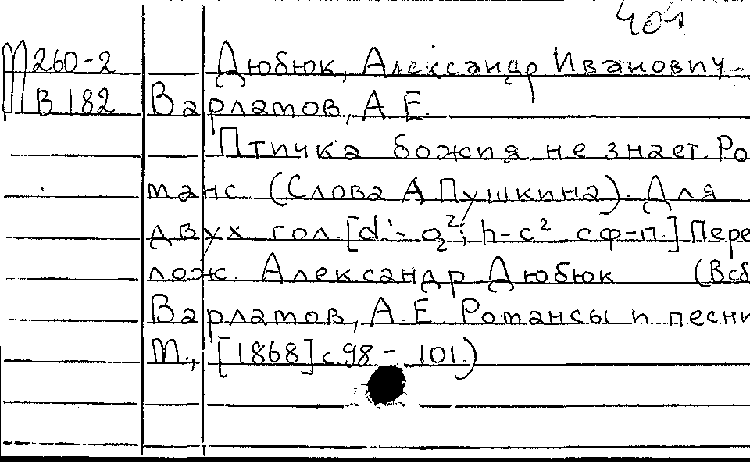 401
М 260-2 Дюбюк, Александр Иванович-
В 182 Варламов, А.Е.
Птичка божия не знает. Ро
манс. (Слова А Пушкина). Для
двух гол. [d¹- g²; h-c² с ф-п.] Пере
лож. Александр Дюбюк (Всб
Варламов, А.Е Романсы и песни
М., [1868] с.98 - 101.)